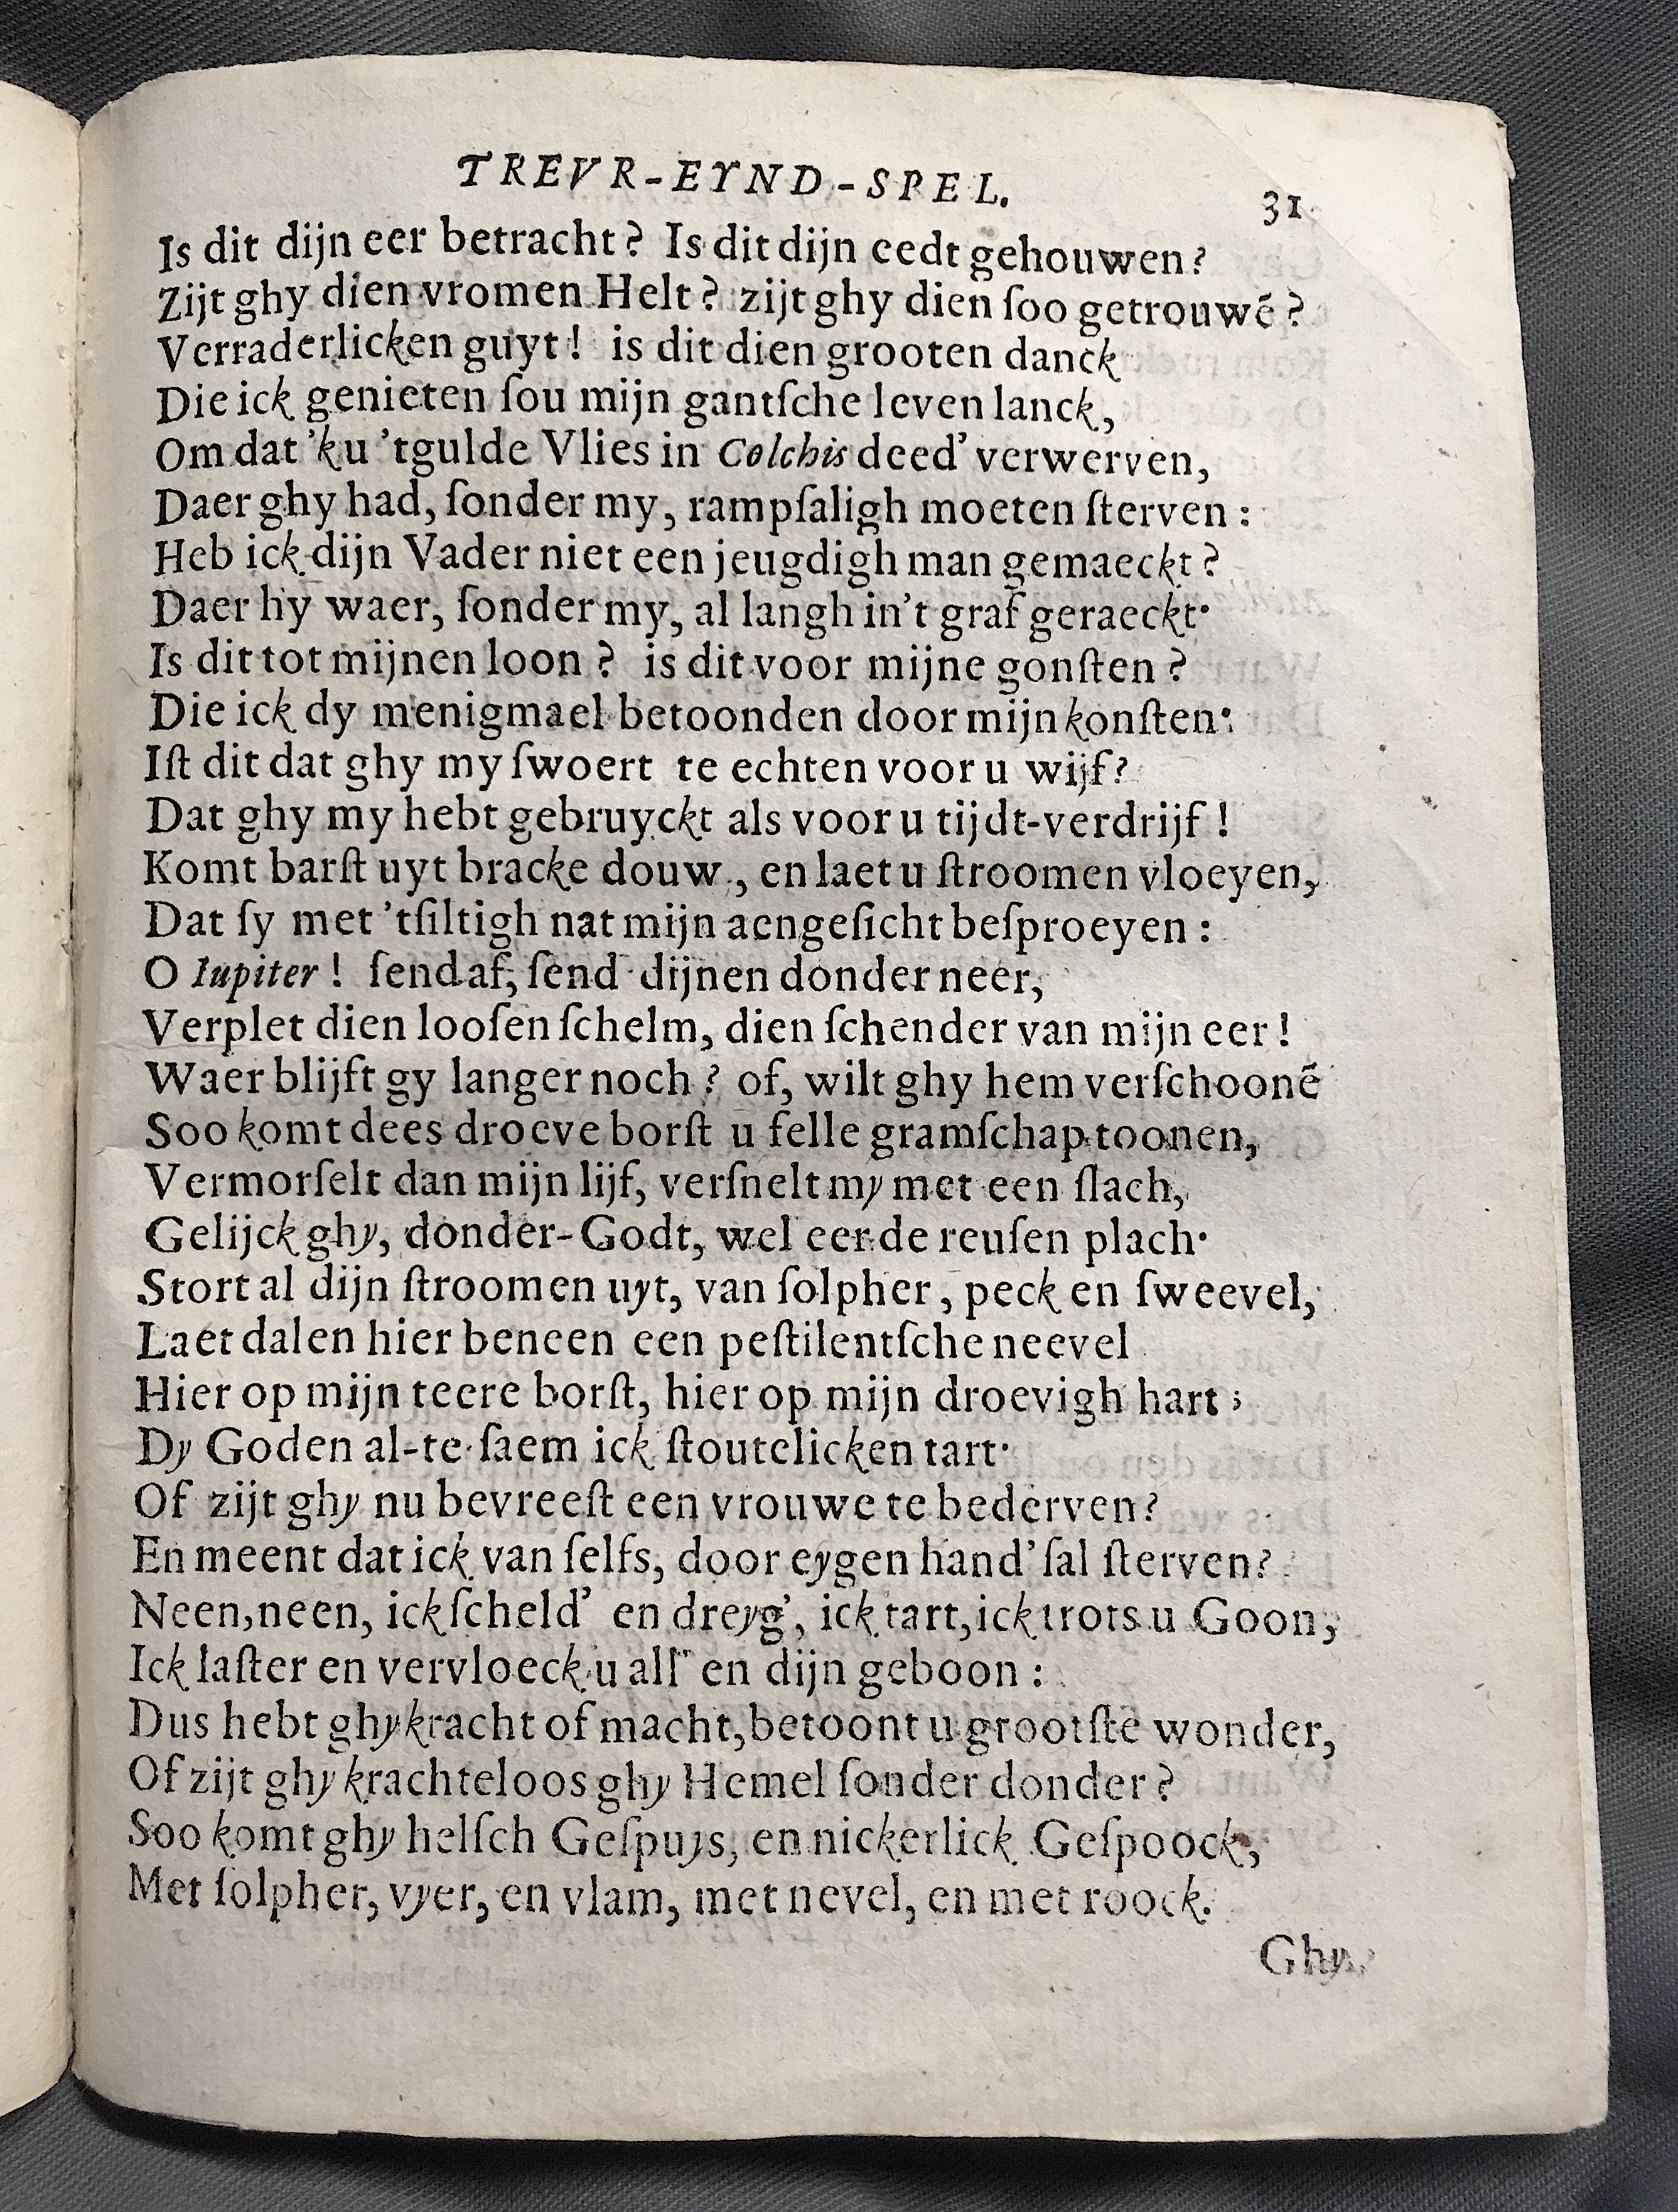 TREVR-EYND-SPEL. 31
Is dit dijn eer betracht? Is dit dijn eedt gehouwen?
Zijt ghy dien vromen Helt? zijt ghy dien ſoo getrouwē?
Verraderlicken guyt! is dit dien grooten danck
Die ick genieten ſou mijn gantſche leven lanck,
Om dat 'k u 'tgulde Vlies in Colchis deed' verwerven,
Daer ghy had, ſonder my, rampſaligh moeten ſterven:
Heb ick dijn Vader niet een jeugdigh man gemaeckt?
Daer hy waer, ſonder my, al langh in't graf geraeckt·
Is dit tot mijnen loon? is dit voor mijne gonſten?
Die ick dy menigmael betoonden door mijn konſten·
Iſt dit dat ghy my ſwoert te echten voor u wijf?
Dat ghy my hebt gebruyckt als voor u tijdt-verdrijf!
Komt barſt uyt bracke douw, en laet u ſtroomen vloeyen,
Dat ſy met 'tſiltigh nat mijn aengeſicht beſproeyen:
O Iupiter! ſend af, ſend dijnen donder neer,
Verplet dien looſen ſchelm, dien ſchender van mijn eer!
Waer blijft gy langer noch? of, wilt ghy hem verſchoonē
Soo komt dees droeve borſt u felle gramſchap toonen,
Vermorſelt dan mijn lijf, verſnelt my met een ſlach,
Gelijck ghy, donder-Godt, wel eer de reuſen plach·
Stort al dijn ſtroomen uyt, van ſolpher, peck en ſweevel,
Laet dalen hier beneen een peſtilentſche neevel
Hier op mijn teere borſt, hier op mijn droevigh hart;
Dy Goden al-te-ſaem ick ſtoutelicken tart·
Of zijt ghy nu bevreeſt een vrouwe te bederven?
En meent dat ick van ſelfs, door eygen hand' ſal ſterven?
Neen, neen, ick ſcheld' en dreyg', ick tart, ick trots u Goon,
Ick laſter en vervloeck u all' en dijn geboon:
Dus hebt ghy kracht of macht, betoont u grootſte wonder,
Of zijt ghy krachteloos ghy Hemel ſonder donder?
Soo komt ghy helſch Geſpuys, en nickerlick Geſpoock,
Met ſolpher, vyer, en vlam, met nevel, en met roock.
Ghy